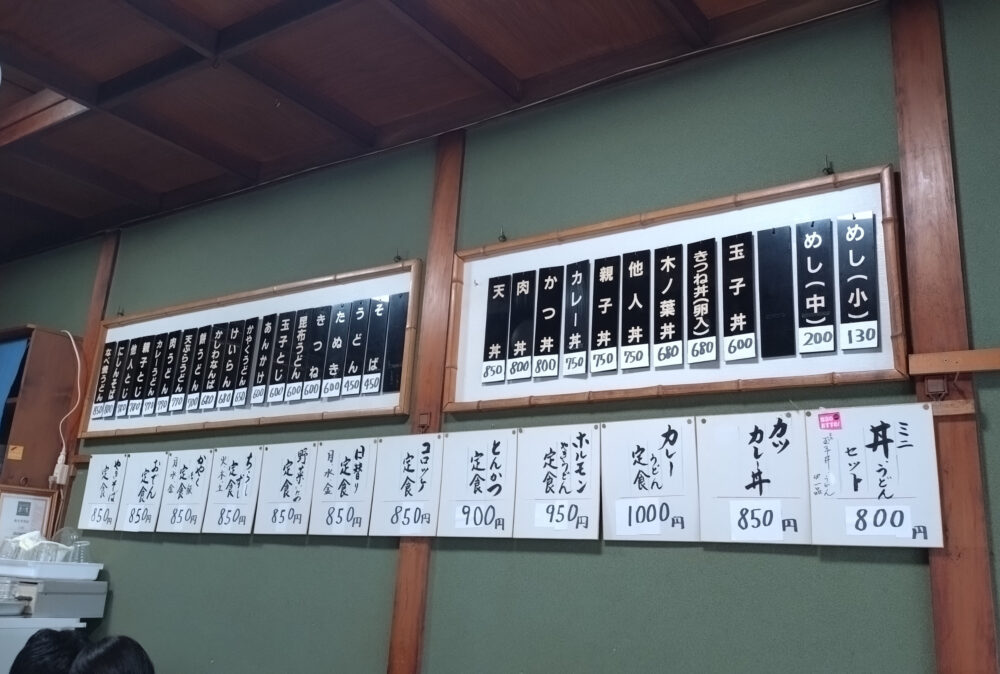 めし(小)
130
めし(中)
200
玉子丼
600
きつね丼(卵入)
680
木ノ葉丼
680
他人丼
750
親子丼
750
カレー丼
750
かつ丼
800
肉丼
800
天丼
850
そば
450
うどん
450
たぬき
600
きつね
600
昆布うどん
600
玉子とじ
600
あんかけ
600
かやくうどん
600
けいらん
かしわなんば
680
餅うどん
680
天ぷらうどん
肉うどん
カレーうどん
親子とじ
他人とじ
にしんそば
なべ焼うどん
850
ミニ
丼・うどん
セット
800円
カツ
カレー丼
850円
カレー
うどん
定食
1000円
ホルモン
やきうどん
定食
950円
とんかつ
定食
900円
コロッケ
定食
850円
日替り
定食
月水金
850円
野菜いため
定食
850円
ちらし
定食
火木土
850円
かやく
定食
月水金
850円
おでん
定食
850円
やきそば
定食
850円